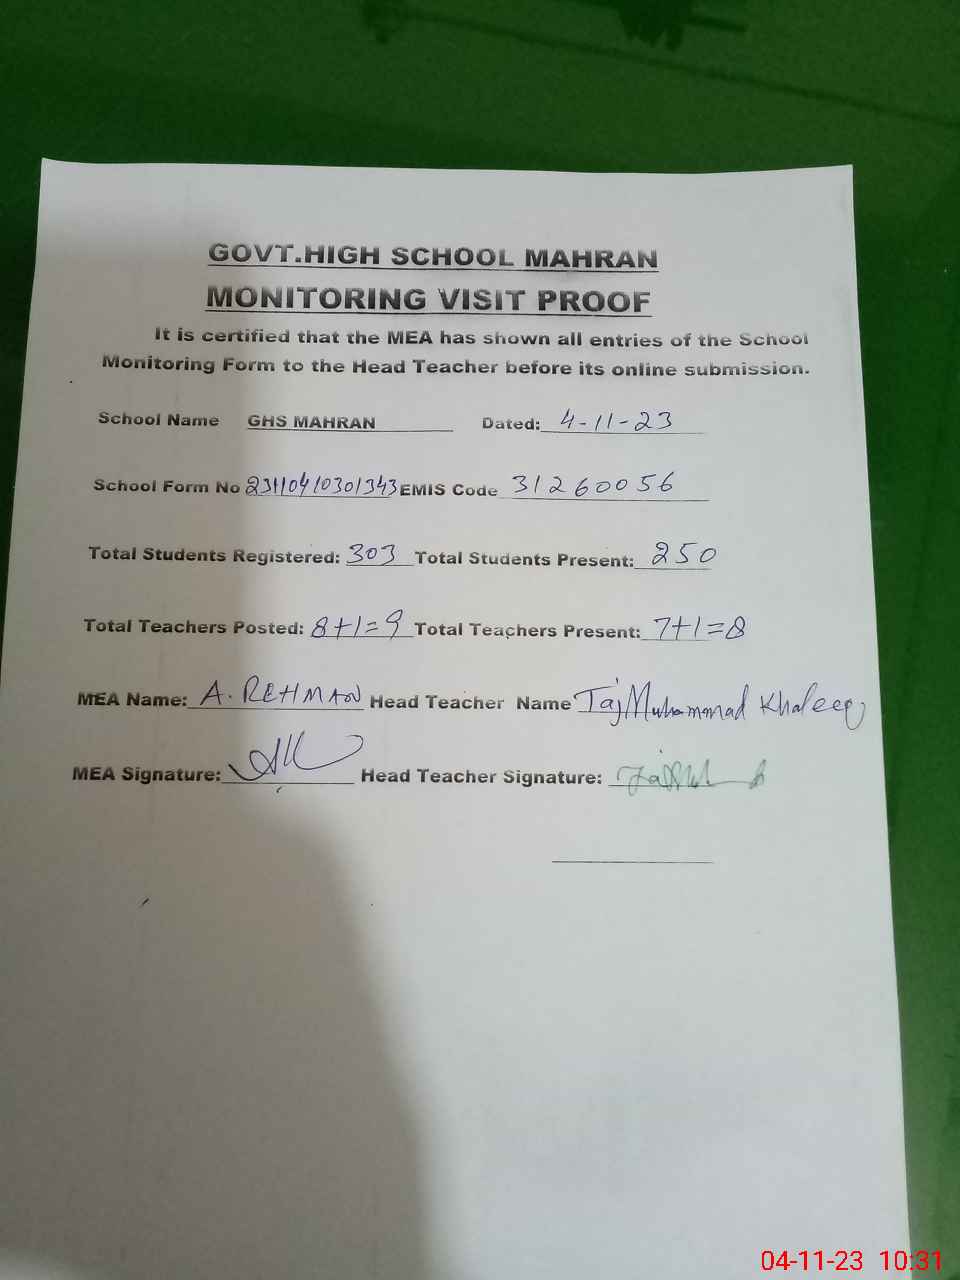 GOVT.HIGH SCHOOL MAHRAN
MONITORING VISIT PROOF
It is certified that the MEA has shown all entries of the School
Monitoring Form to the Head Teacher before its online submission.
School Name GHS MAHRAN Dated: 4-11-23
School Form No 23110410301343 EMIS Code 31260056
Total Students Registered: 303 Total Students Present: 250
Total Teachers Posted: 8+1=9 Total Teachers Present: 7+1=8
MEA Name: A. REHMAN Head Teacher Name Taj Muhammad Khaleeq
MEA Signature: Head Teacher Signature:
04-11-23 10:31